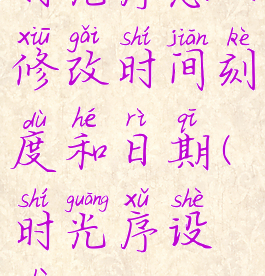 xiū gǎi shí jiān kè
修改时间刻
dù hé rì qī
度和日期(
shí guāng xǔ shè
时光序设